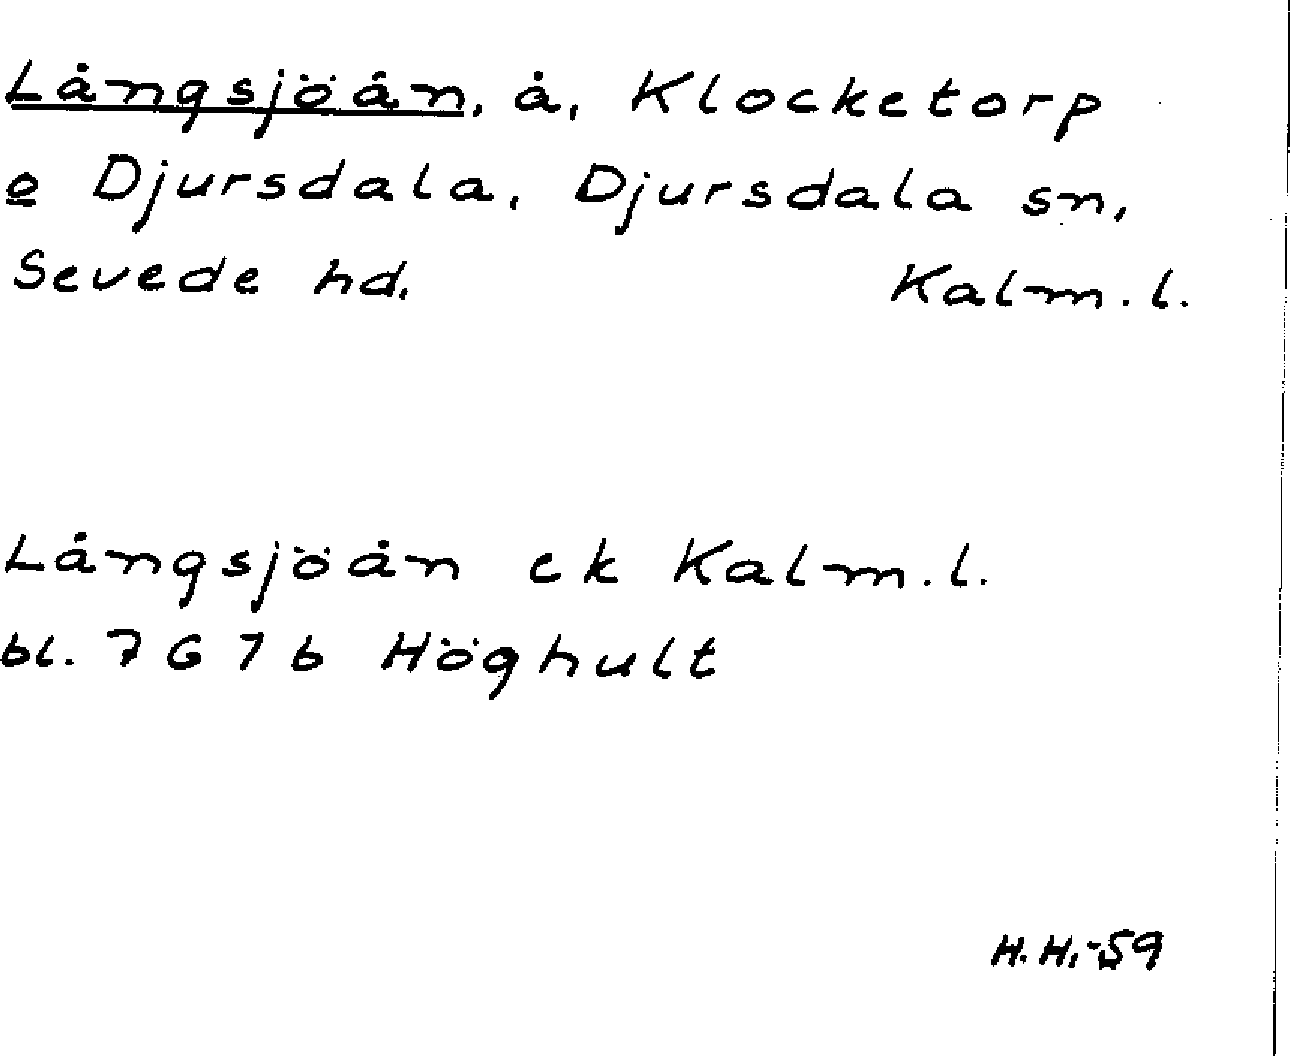 Långsjöån, å, Klocketorp
o Djursdala, Djursdala sn,
Sevede hd. Kalm.l.
Långsjöån ek Kalm.l.
bl. 7 G 7 b Höghult
H.H.-59